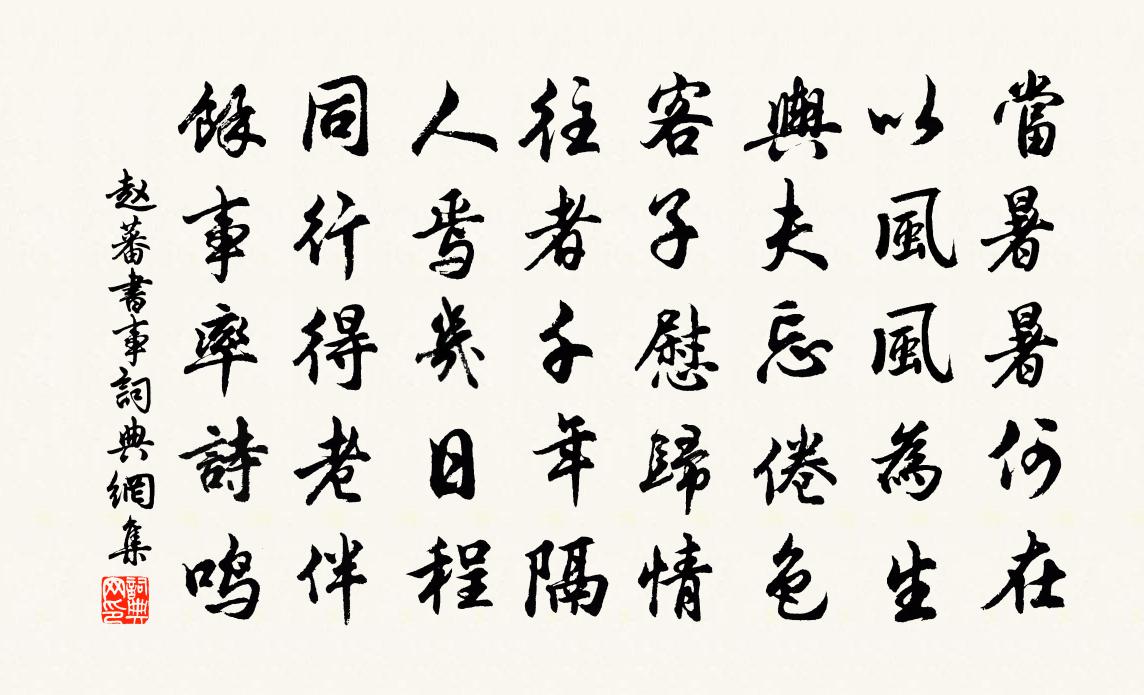 當暑暑何在
以風風為生
輿夫忘倦色
客子慰歸情
往者千年隔
人焉幾日程
同行得老伴
餘事率詩鳴
赵蕃書事詞典網集
詞典网印